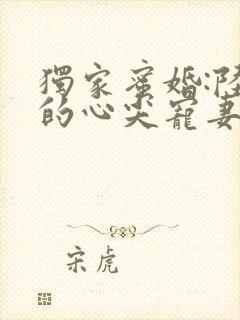 獨家蜜婚:陸
的心尖寵妻
宋虎